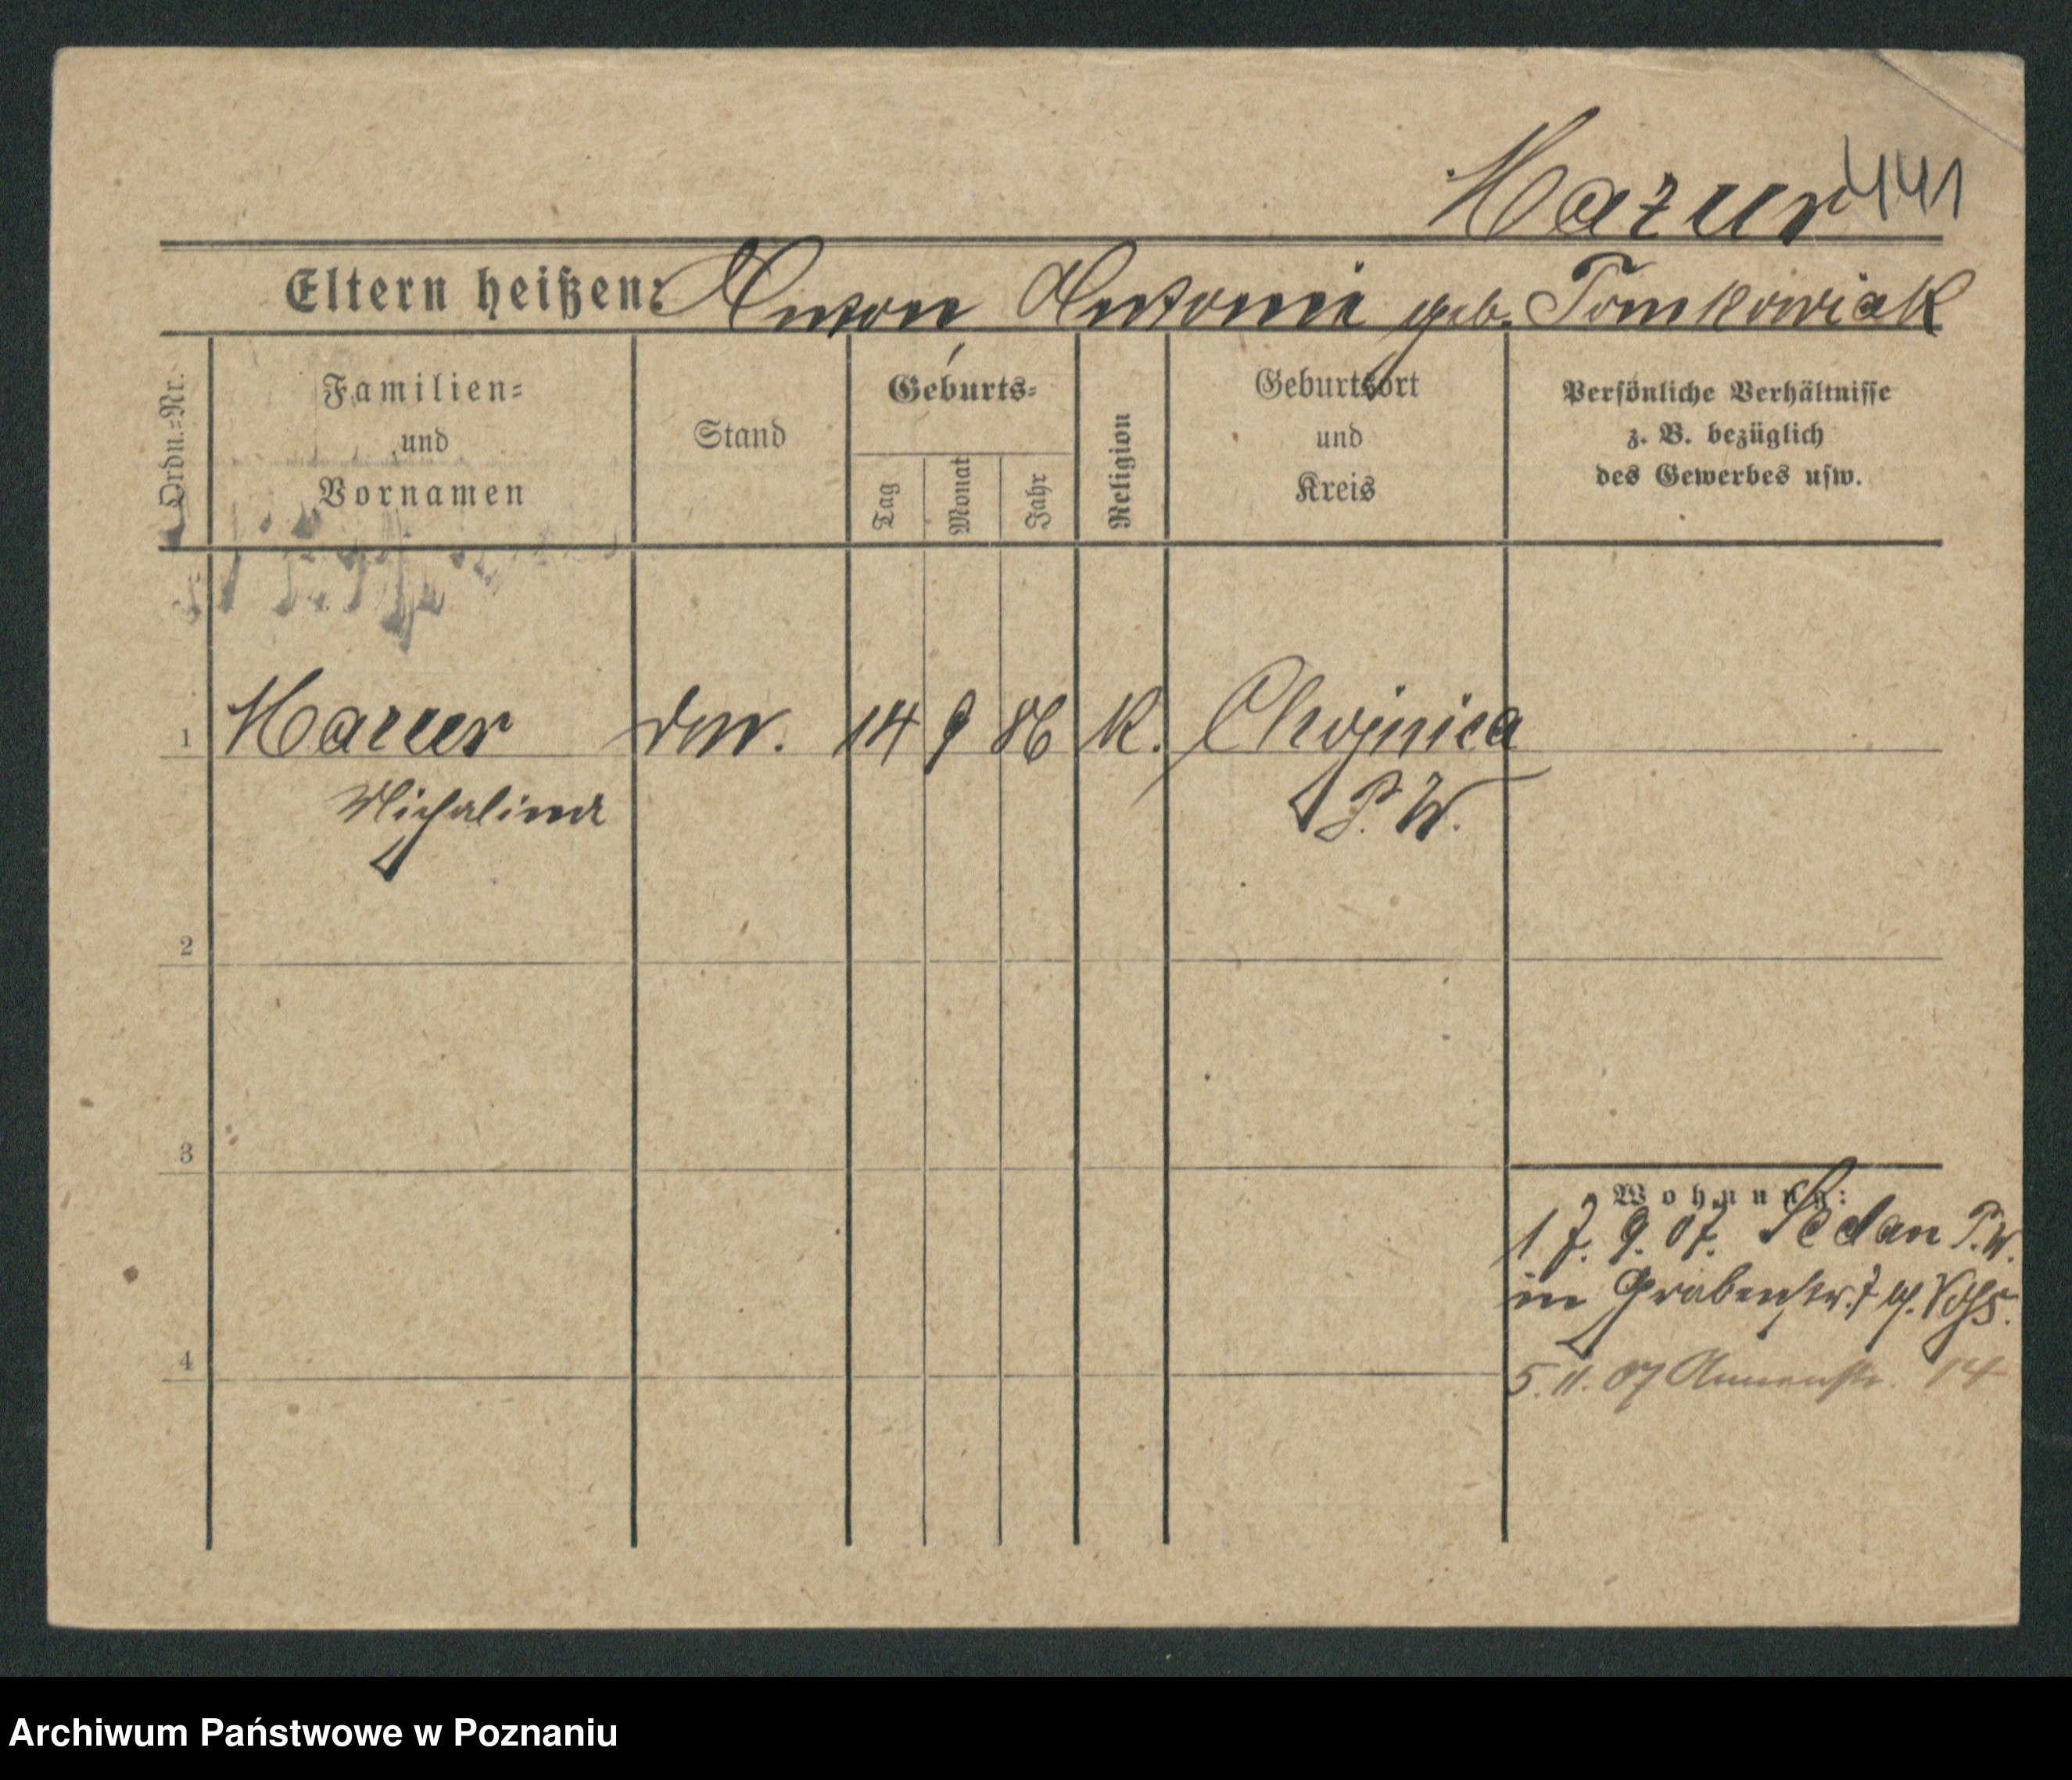 Mazur 441
Eltern heißen: Anton Antonii geb. Tomkowiak
Ordn.=Nr.
Familien=
und
Vornamen
Stand
Geburts=
Tag
Monat
Jahr
Religion
Geburtsort
und
Kreis
Persönliche Verhältnisse
z. B. bezüglich
des Gewerbes usw.
1 Mazur 14 9 86 K. Chojnica
Michalina P. W.
2
3
Wohnung:
17. 9. 07. Sedan P. W.
in Grabenstr. 7
4
5. 11. 07 Annenstr. 14
Archiwum Państwowe w Poznaniu